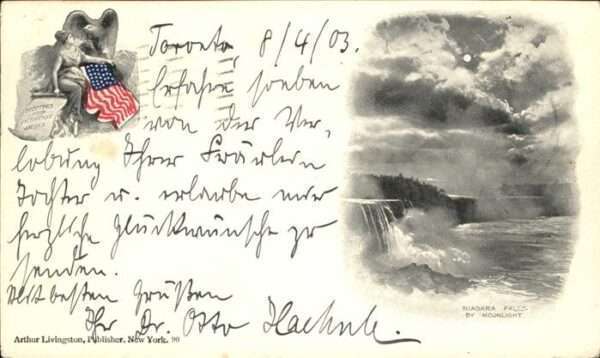 Toronto, 8/4/03.
Erfahre soeben
von der Ver-
lobung Ihrer Fräulein
Tochter u. erlaube mir
herzliche Glückwünsche zu
senden.
Mit besten Grüßen
Ihr Dr. Otto
NIAGARA FALLS
BY MOONLIGHT.
Arthur Livingston, Publisher, New York. 90